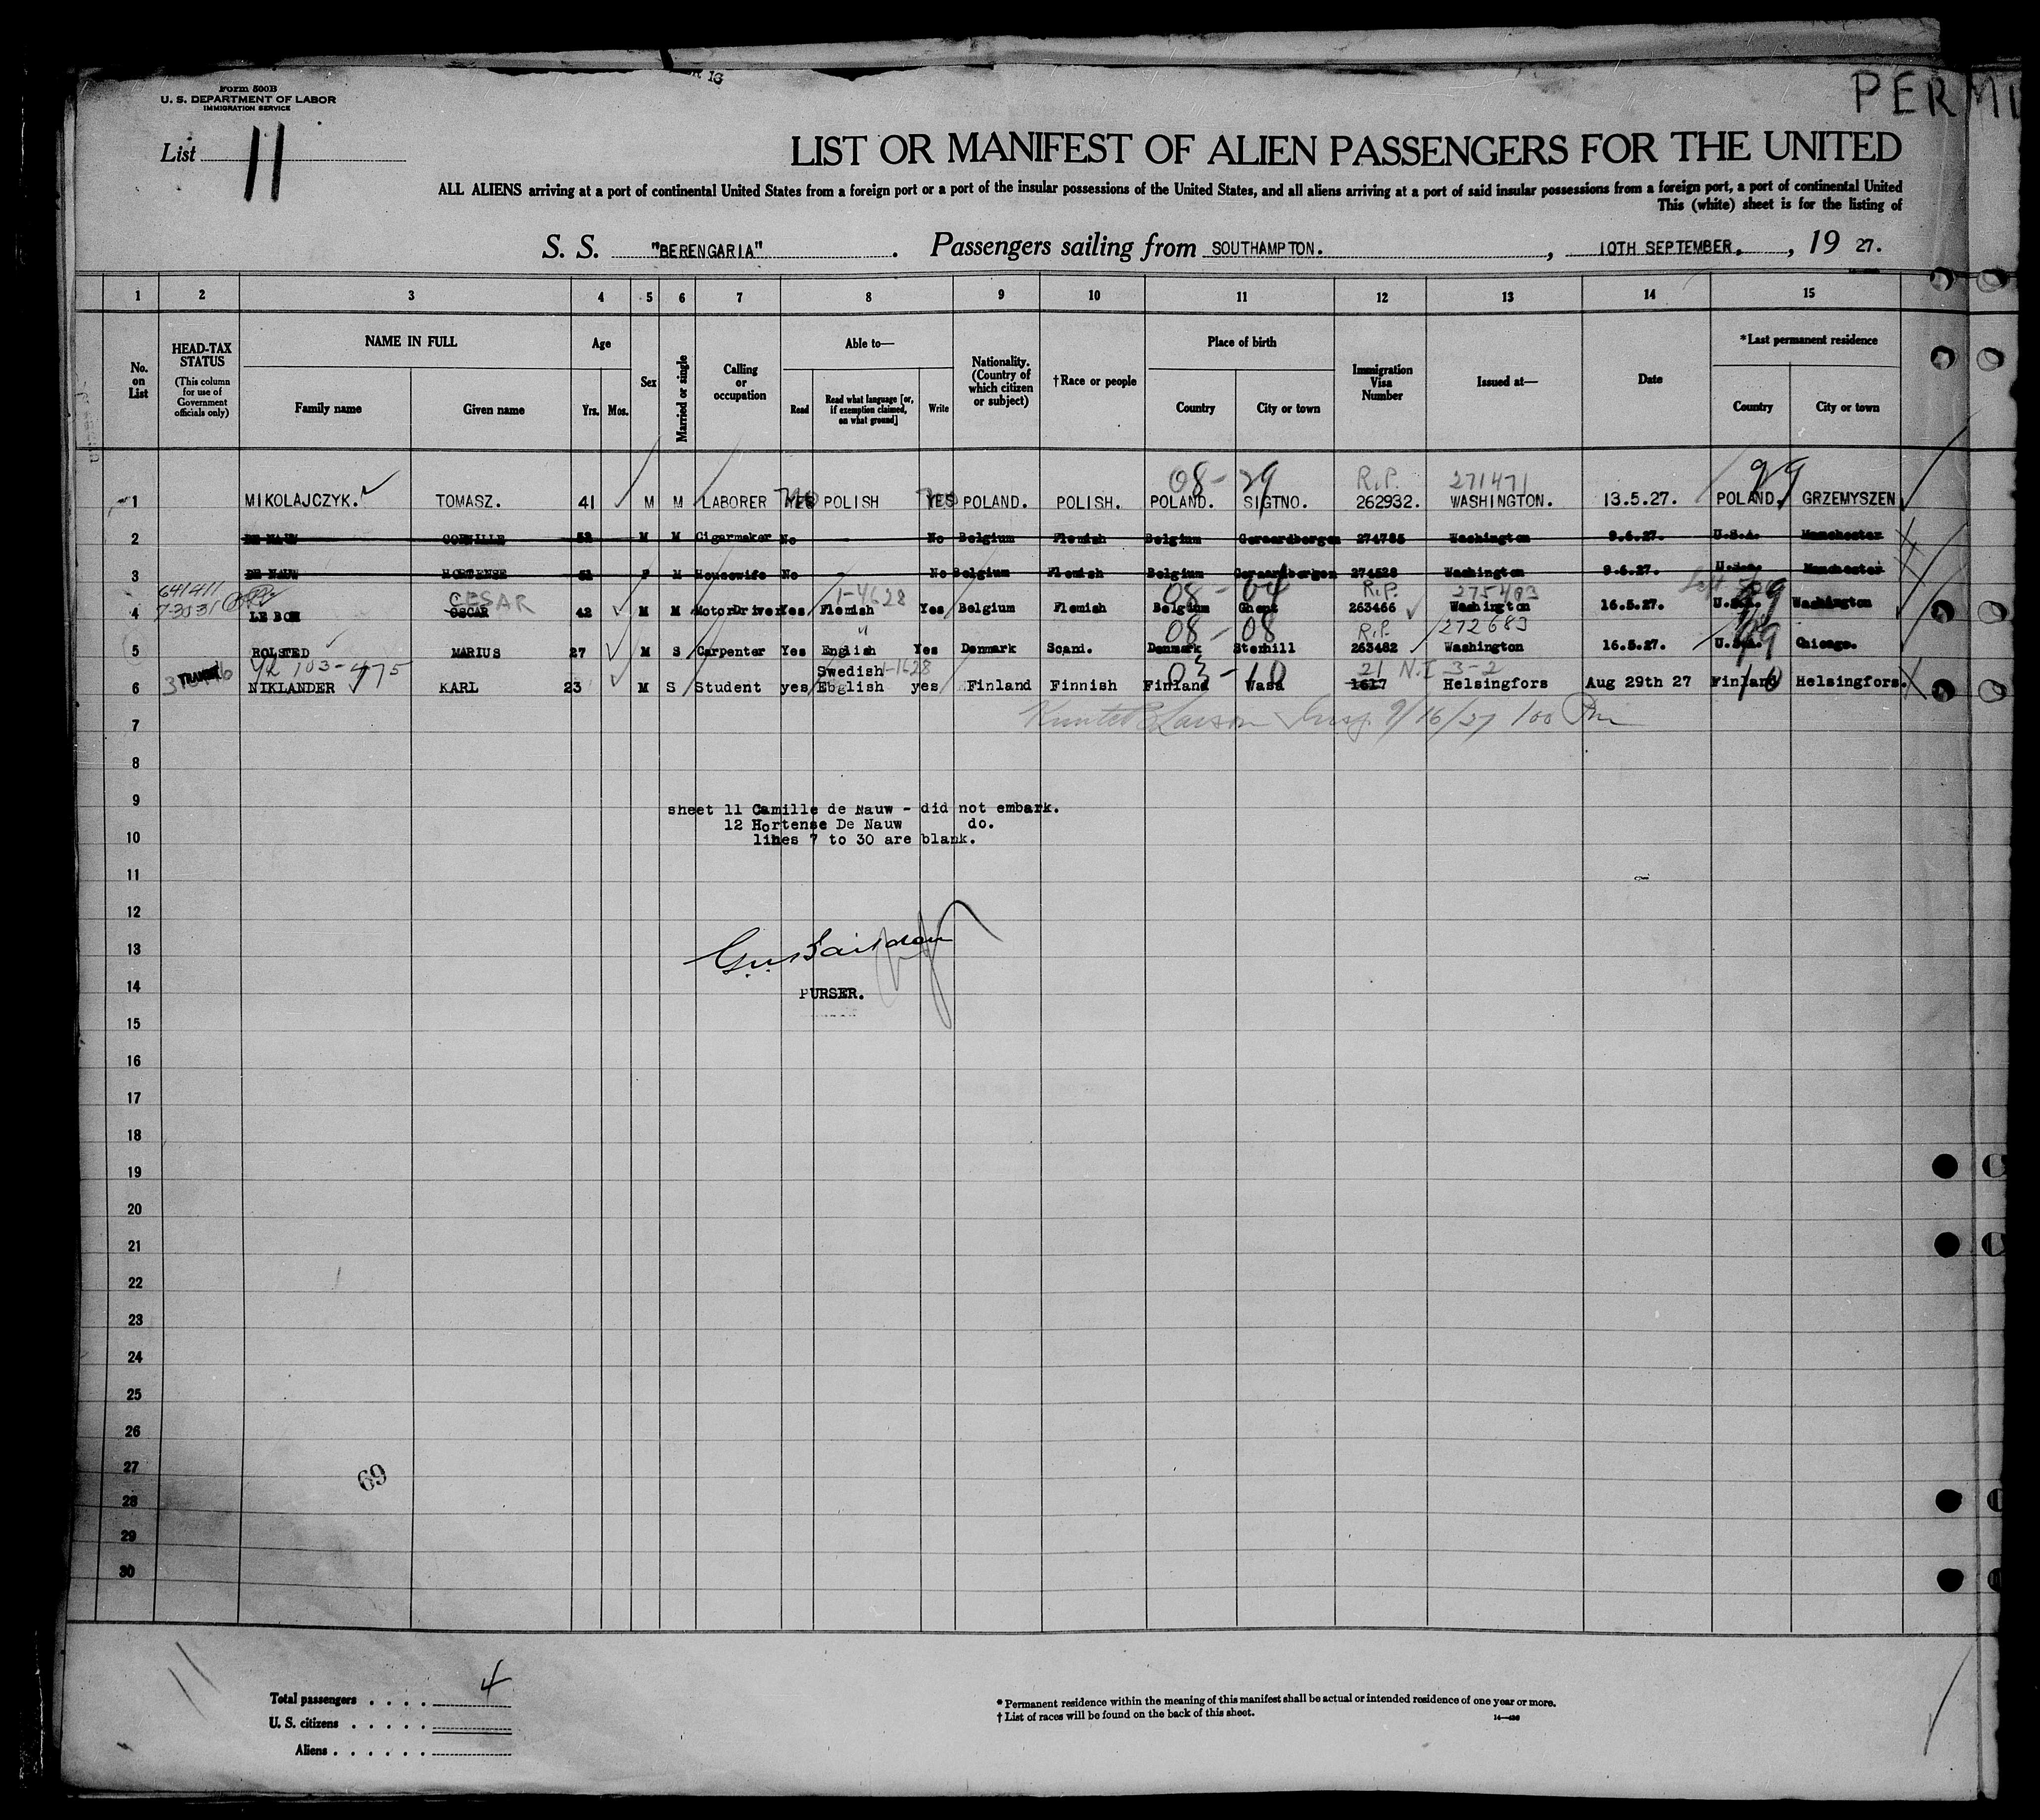 Form 500B
U. S. DEPARTMENT OF LABOR
IMMIGRATION SERVICE
PERMI
List 11
LIST OR MANIFEST OF ALIEN PASSENGERS FOR THE UNITED
ALL ALIENS arriving at a port of continental United States from a foreign port or a port of the insular possessions of the United States, and all aliens arriving at a port of said insular possessions from a foreign port, a port of continental United
This (white) sheet is for the listing of
S. S. "BERENGARIA". Passengers sailing from SOUTHAMPTON., 10TH SEPTEMBER., 19 27.
1 2 3 4 5 6 7 8 9 10 11 12 13 14 15
No. on List
HEAD-TAX STATUS (This column for use of Government officials only)
NAME IN FULL
Family name Given name
Age
Yrs. Mos.
Sex
Married or single
Calling or occupation
Able to—
Read Read what language [or, if exemption claimed, on what ground] Write
Nationality. (Country of which citizen or subject)
†Race or people
Place of birth
Country City or town
Immigration Visa Number
Issued at—
Date
*Last permanent residence
Country City or town
08-29 R.P. 271471 99
1 MIKOLAJCZYK. TOMASZ. 41 M M LABORER YES POLISH YES POLAND. POLISH. POLAND. SIGTNO. 262932. WASHINGTON. 13.5.27. POLAND. GRZEMYSZEN
2 DE NAUW 52 M M Cigarmaker No No Belgium Flemish Belgium Geraardbergen 274785 Washington 9.6.27. U.S.A. Manchester
3 DE NAUW HORTENSE 51 F M Housewife No - No Belgium Flemish Belgium Geraardbergen 274528 Washington 9.6.27. U.S.A. Manchester
641411 CESAR 1-4628 08-04 R.P. 275403
4 LE BON OSCAR 42 M M MotorDriver Yes Flemish Yes Belgium Flemish Belgium Ghent 263466 Washington 16.5.27. U.S.A. Washington
" 08-08 R.P. 272683
5 ROLSTED MARIUS 27 M S Carpenter Yes English Yes Denmark Scand. Denmark Stenhill 263482 Washington 16.5.27. U.S.A. 99 Chicago.
TRANSIT 103-475 Swedish 1-1628 03-10 21 N.I 3-2
6 NIKLANDER KARL 23 M S Student yes English yes Finland Finnish Finland Wasa 1617 Helsingfors Aug 29th 27 Finland 10 Helsingfors.
Larson Insp. 9/16/27 100 Pm
7
8
9
sheet 11 Camille de Nauw - did not embark.
12 Hortense De Nauw do.
10
lines 7 to 30 are blank.
11
12
13
14
PURSER.
15
16
17
18
19
20
21
22
23
24
25
26
27
69
28
29
30
11
Total passengers . . . . 4
U. S. citizens . . . . .
Aliens . . . . . .
* Permanent residence within the meaning of this manifest shall be actual or intended residence of one year or more.
† List of races will be found on the back of this sheet.